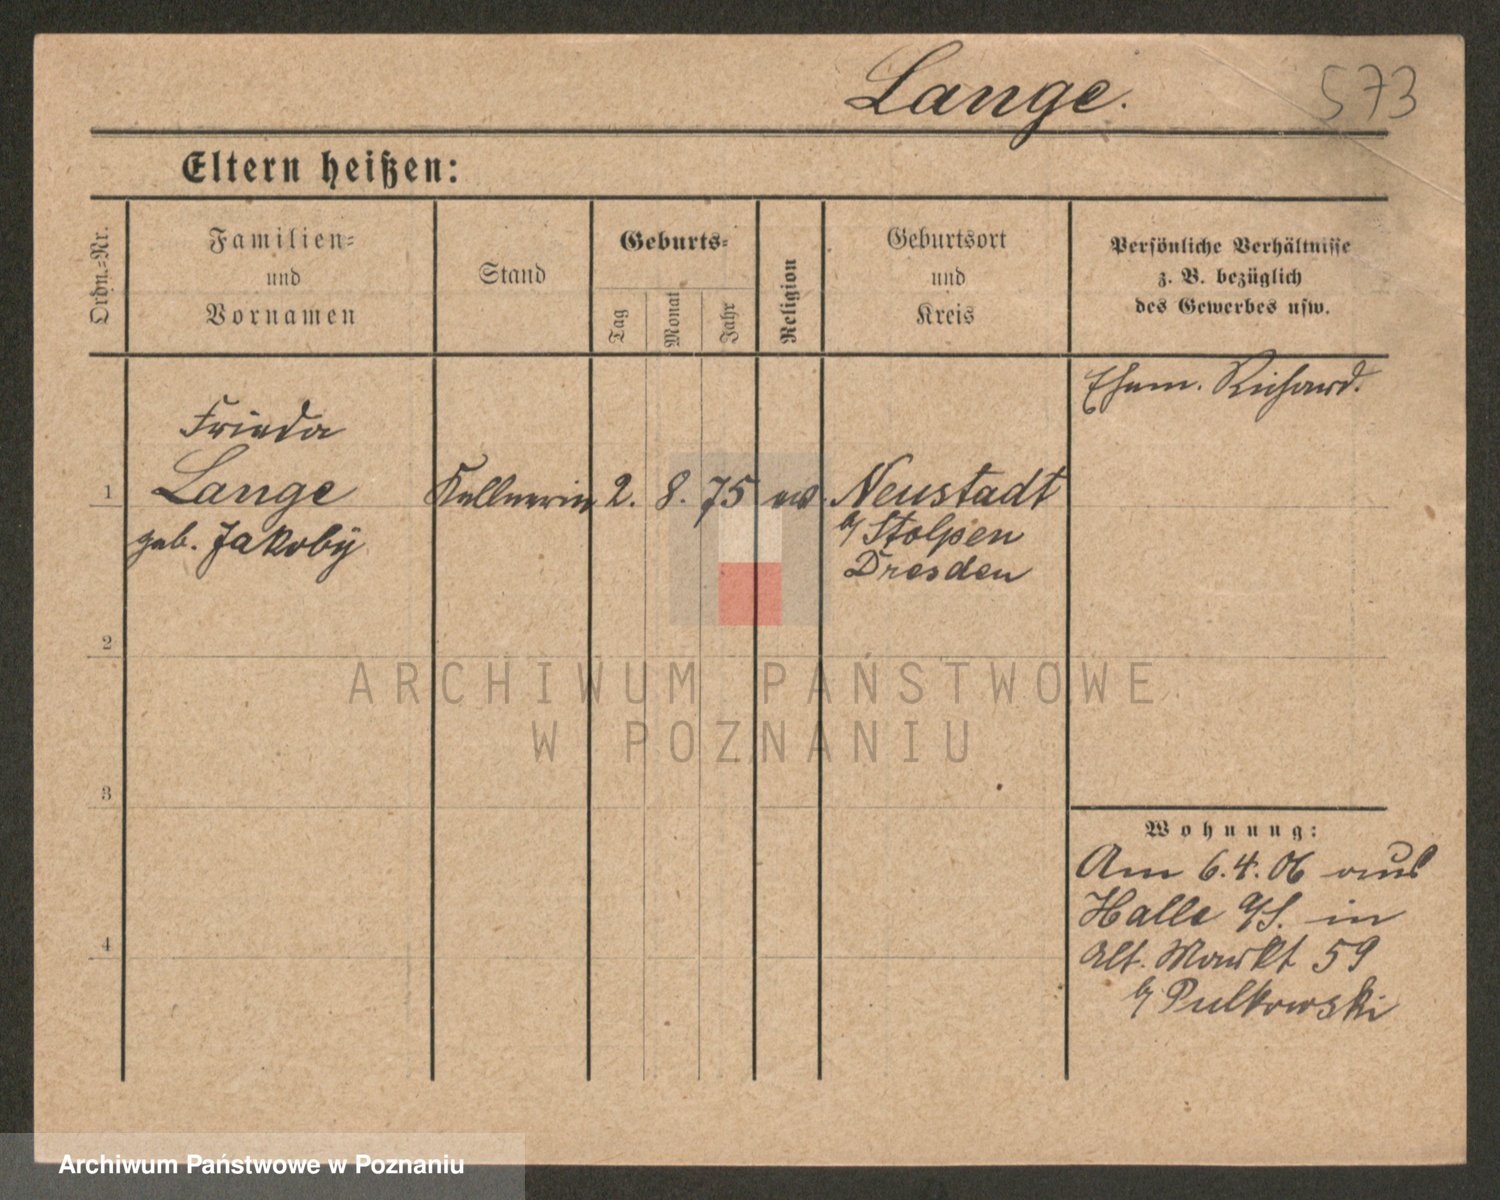 Lange.
573
Eltern heißen:
Ordn.-Nr.
Familien-
und
Vornamen
Stand
Geburts-
Tag
Monat
Jahr
Religion
Geburtsort
und
Kreis
Persönliche Verhältnisse
z. B. bezüglich
des Gewerbes usw.
Ehem. Richard.
Frieda
1 Lange Kellnerin 2. 8. 75 ev. Neustadt
geb. Jakoby
b/ Stolpen
Dresden
2
3
4
Wohnung:
Am 6.4.06 aus
Halle a/S. in
Alt. Markt 59
b/ Pulkowski
ARCHIWUM PAŃSTWOWE
W POZNANIU
Archiwum Państwowe w Poznaniu